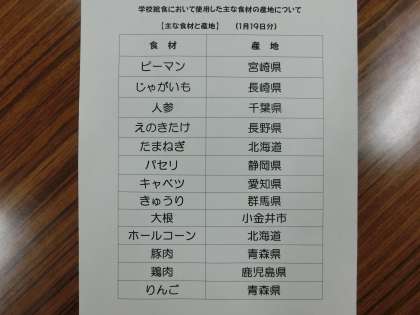 学校給食において使用した主な食材の産地について
【主な食材と産地】 (1月19日分)
食 材 産 地
ピーマン 宮崎県
じゃがいも 長崎県
人参 千葉県
えのきたけ 長野県
たまねぎ 北海道
パセリ 静岡県
キャベツ 愛知県
きゅうり 群馬県
大根 小金井市
ホールコーン 北海道
豚肉 青森県
鶏肉 鹿児島県
りんご 青森県